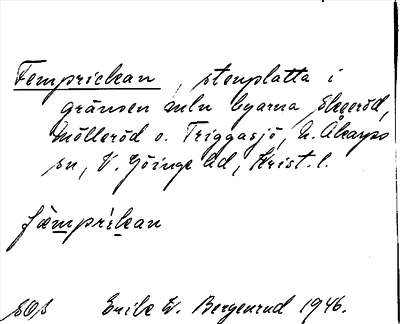 Femprickan, stenplatta i
gränsen mln byarna Skeeröd,
Mölleröd o. Triggasjö, N. Åkarps
sn, V. Göinge hd, Krist. l.
fæmprikan
Erik W. Bergenrud 1946.